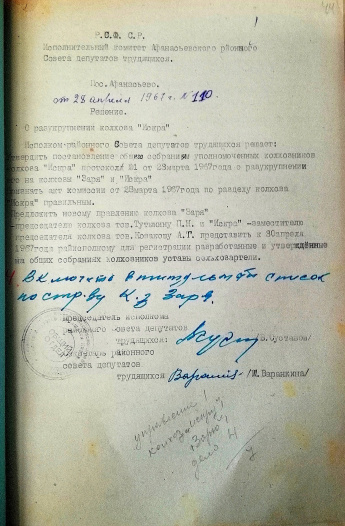 Р.С.Ф.С.Р.
Исполнительный комитет Афанасьевского районного
Совета депутатов трудящихся.
Пос. Афанасьево.
от 28 апреля 1967 г. № 110.
Решение.
О разукрупнении колхоза "Искра"
Исполком районного Совета депутатов трудящихся решает:
Утвердить постановление общих собраний уполномоченных колхозников
колхоза "Искра" протокол №1 от 28марта 1967года о разукрупнении
его на колхозы "Заря" и "Искра"
Признать акт комиссии от 28марта 1967года по разделу колхоза
"Искра" правильным.
Предложить новому правлению колхоза "Заря"
-председателе колхоза тов. П.М. и "Искра" -заместителю
председателя колхоза тов. А.Т. представить к 30апреля
1967года райисполкому для регистрации разработанные и утверждённые
на общих собраниях колхозников уставы сельхозартели.
Включить в титульный список
по стр-ву К-з Заря.
Председатель исполкома
районного совета депутатов
трудящихся:
Секретарь районного
совета депутатов
трудящихся /М.Варанкина/